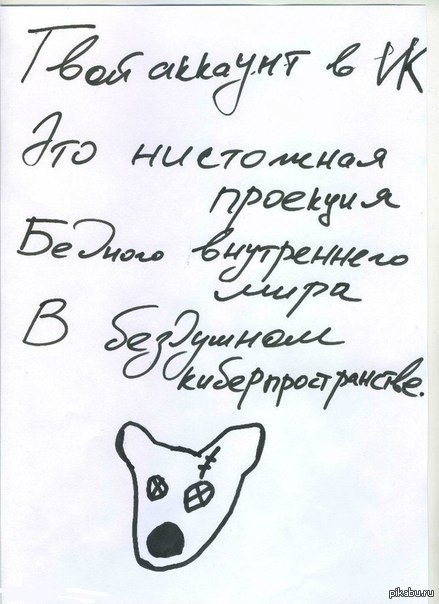 Твой аккаунт в VK
Это нистожная
проекция
Бедного внутреннего
мира
В бездушном
киберпространстве.
pikabu.ru